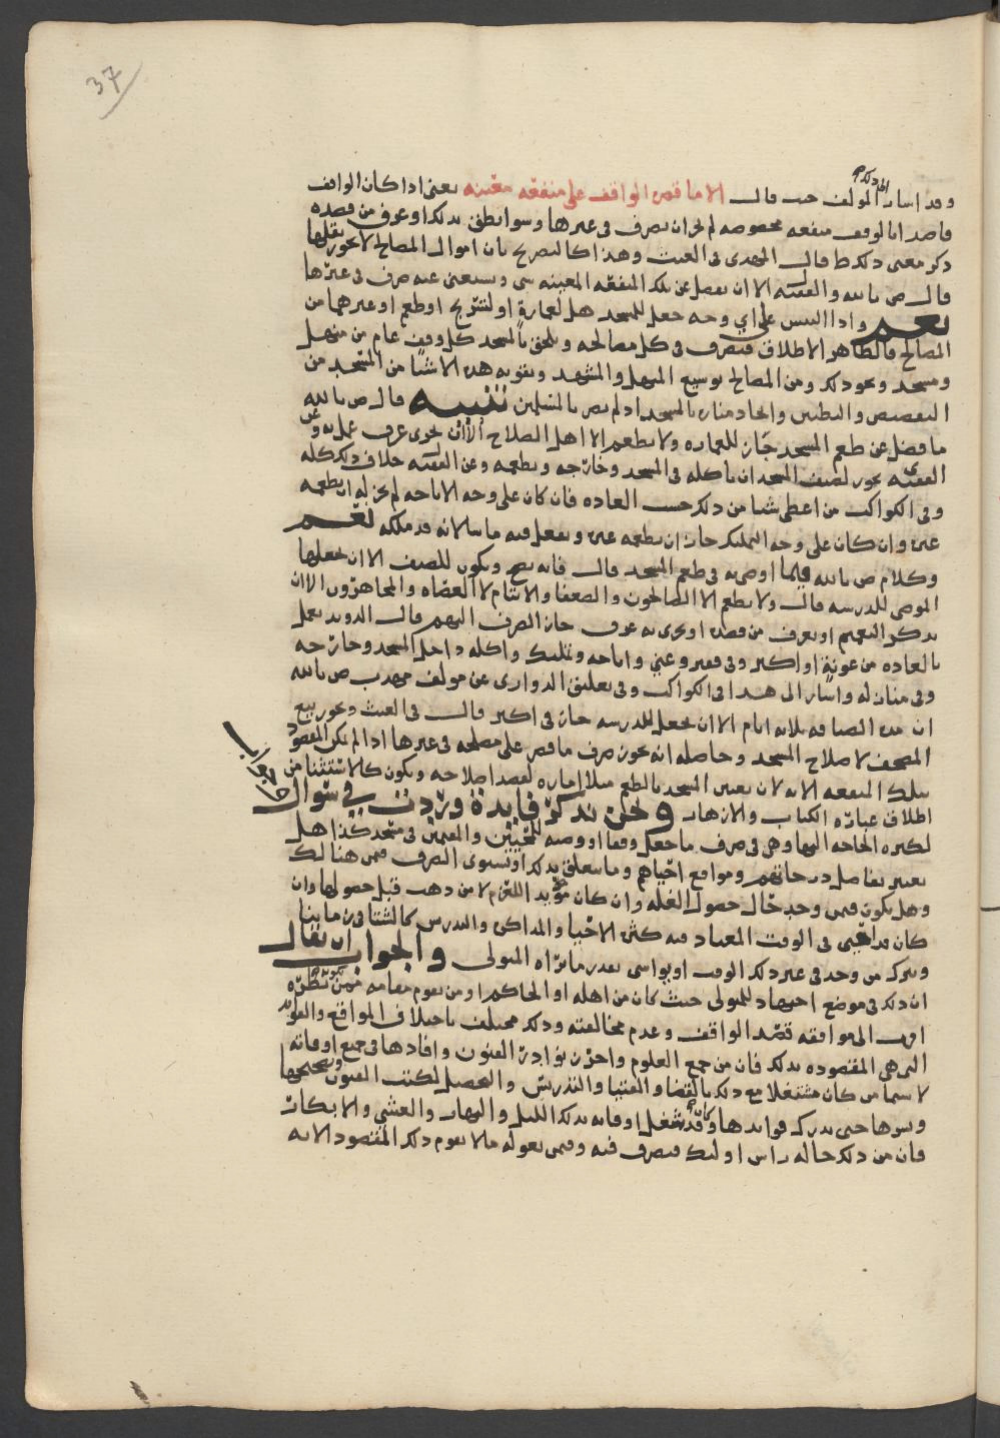 37
وقد اشار الى ذلك المؤلف حيث قال الا ما قصره الواقف على منفعه معينه يعني اذا كان الواقف
قاصدا بالوقف منفعه مخصوصه لم يجز ان يصرف في غيرها وسوا نطق بذلك او عرف من قصده
ذكر معنى ذلك ط قال المهدي في الغيث وهذا كالتصريح بان اموال المصالح لا يجوز نقلها
قال ص بالله والفقيه الا ان يفضل عن تلك المنفعه المعينه شي ويستغني عنه صرف في غيرها
نعم واذا التبس على اي وجه جعل للمسجد هل لعمارة او لتسريج او طعم او غيرهما من
المصالح فالظاهر الاطلاق فيصرف في كل مصالحه ويلحق بالمسجد كل وقف عام من منهل
ومسجد ونحو ذلك ومن المصالح توسيع المنهل والمشهد وتقويه هذه الاشيا من المسجد من
التقصيص والتطيين واتخاذ مناره بالمسجد اذ لم يضر بالمسلمين تنبيه قال ص بالله
ما فضل عن طعم المسجد جاز للعماره ولا يطعم الا اهل الصلاح الا ان يجري عرف عمل به وعن
الفقيه يجوز لضيف المسجد ان ياكله في المسجد وخارجه ويطعمه وعن الفقيه خلاف ذلك كله
وفي الكواكب من اعطي شيا من ذلك حسب العاده فان كان على وجه الاباحه لم يجز له ان يطعمه
غيره وان كان على وجه التمليك جاز ان يطعمه غيره ويفعل فيه ما شا لانه قد ملكه نعم
وكلام ص بالله فيما اوصي به في طعم المسجد قال فانه يصح ويكون للضيف الا ان يجعلها
الموصي للمدرسه قال ولا يطعم الا الصالحون والضعفا والايتام لا العصاه والمجاهرون الا ان
يذكر التعميم او يعرف من قصده او يجري به عرف جاز الصرف اليهم قال الدويد يعمل
بالعاده من عونة او اكثر وفي فقير وغني واباحه وتمليك واكله داخل المسجد وخارجه
وفي منان له واشار الى هذا في الكواكب وفي تعليق الدواري عن مولف مهذب ص بالله
ان مده الضيافه ثلاثه ايام الا ان يجعل للمدرسه جاز في اكثر قال في الغيث ويجوز بيع
المصحف لاصلاح المسجد وحاصله انه يجوز صرف ما قصر على مصلحه في غيرها اذا لم تكن المقصود
بتلك المنفعه الا به لان تغيير المسجد بالطعم مثلا اماره لقصد اصلاحه ويكون كالاستثنا من
اطلاق عبارة الكتاب والازهار ونحن نذكر فايدة وردت في سوال
لكثره الحاجه اليها وهي في صرف ما جعل وقفا او وصيه للمحيين والمقيمين في مسجد كذا هل
يعتبر تفاضل درجاتهم ومواقع احياهم وما يتعلق بذلك او يستوي الصرف فيمن هنالك
وهل يكون فيمن وجد حال حصول الغله وان كان مؤيد اللزم لا من ذهب قبل حصولها وان
كان قد احيى في الوقت المعتاد فيه كثره الاحيا والمذاكره والتدريس كالشتا في زماننا
ويترك من وجد في غير ذلك الوقت او يواسى بقدر ما يراه المتولي والجواب ان يقال
ان ذلك في موضع اجتهاد للمتولي حيث كان من اهله او الحاكم او من يقوم مقامه ممن يكون نظره
اقرب الى موافقه قصد الواقف وعدم مخالفته وذلك مختلف باختلاف المواقع والفوايد
التي هي المقصوده بذلك فان من جمع العلوم واحرز نوادر الفنون وافادها في جميع اوقاته
لا سيما من كان مشتغلا مع ذلك بالقضا والفتيا والتدريس والتحصيل لكتب الفنون وتصحيحها
ونحوها حتى يدرك فوايدها وكان قد شغل اوقاته بذلك الليل والنهار والعشي والابكار
فان من ذلك حاله راس اولئك فيصرف فيه وفيمن يعوله مالا يقوم ذلك المقصود الا به